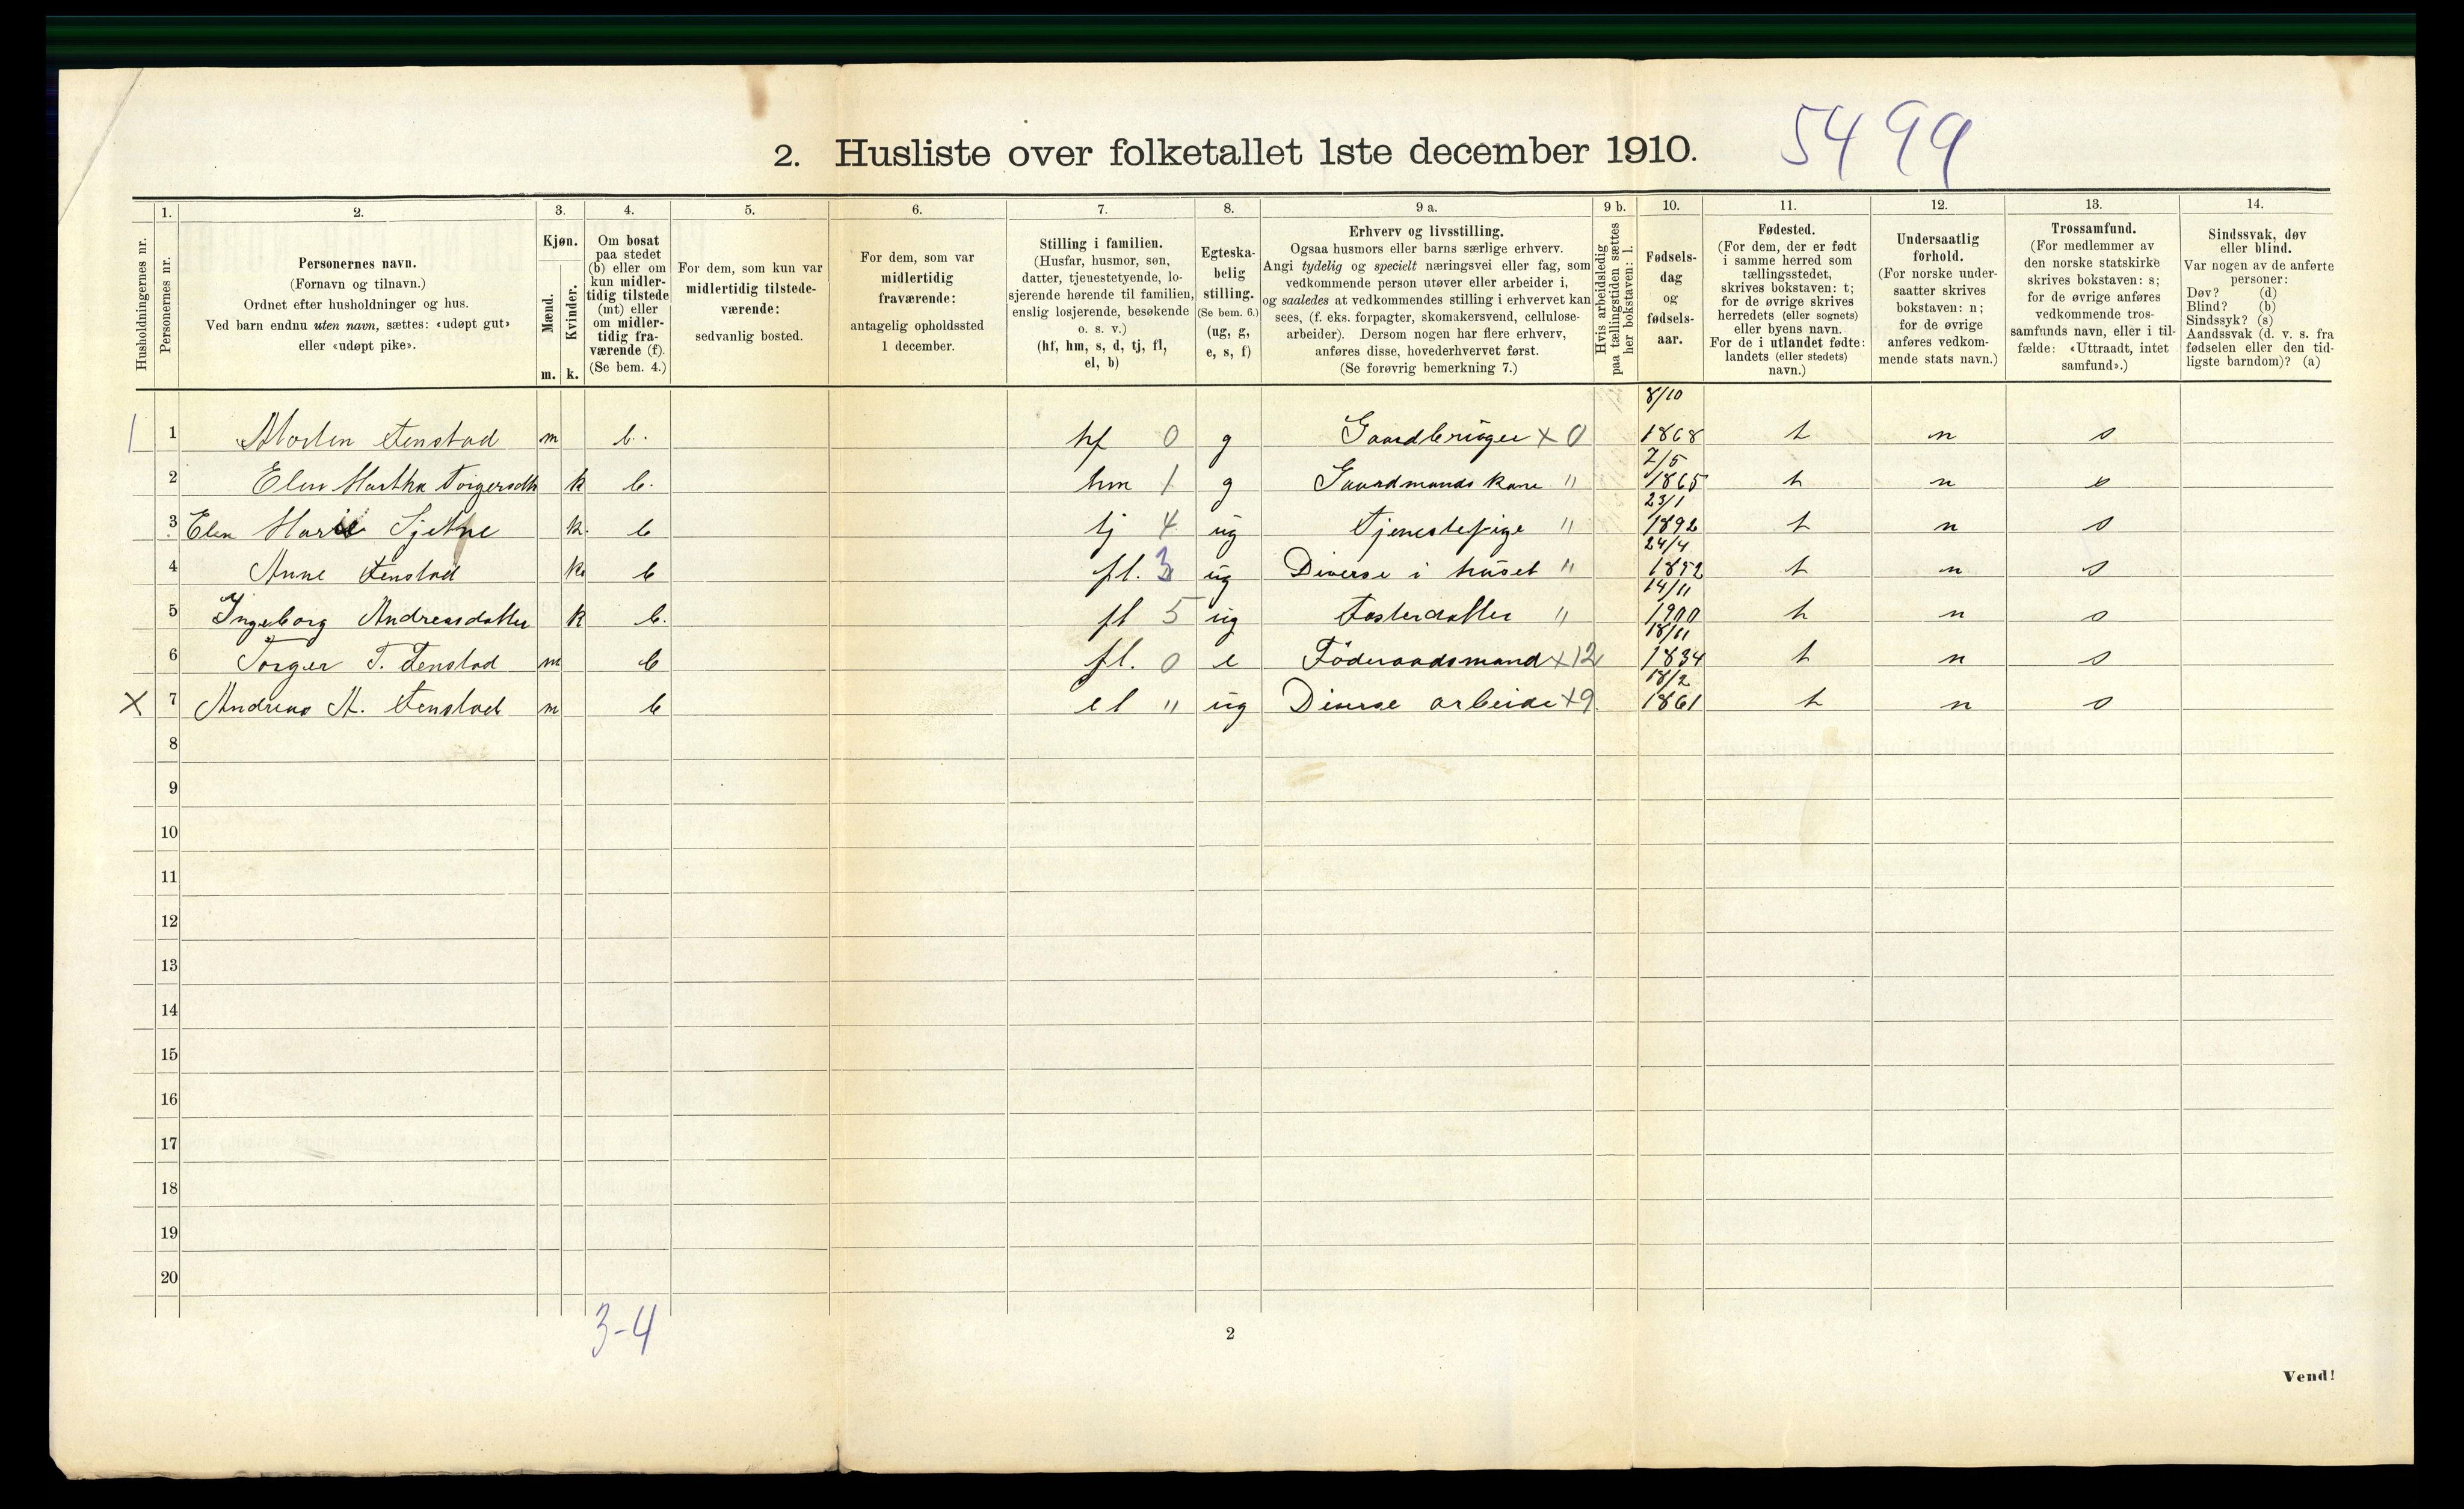 2. Husliste over folketallet 1ste december 1910. 5499
1. 2. 3. 4. 5. 6. 7. 8. 9 a. 9 b. 10. 11. 12. 13. 14.
Husholdningernes nr.
Personernes nr.
Personernes navn.
(Fornavn og tilnavn.)
Ordnet efter husholdninger og hus.
Ved barn endnu uten navn, sættes: «udøpt gut»
eller «udøpt pike».
Kjøn.
Mænd.
Kvinder.
m. k.
Om bosat
paa stedet
(b) eller om
kun midler-
tidig tilstede
(mt) eller
om midler-
tidig fra-
værende (f).
(Se bem. 4.)
For dem, som kun var
midlertidig tilstede-
værende:
sedvanlig bosted.
For dem, som var
midlertidig
fraværende:
antagelig opholdssted
1 december.
Stilling i familien.
(Husfar, husmor, søn,
datter, tjenestetyende, lo-
sjerende hørende til familien,
enslig losjerende, besøkende
o. s. v.)
(hf, hm, s, d, tj, fl,
el, b)
Egteska-
belig
stilling.
(Se bem. 6.)
(ug, g,
e, s, f)
Erhverv og livsstilling.
Ogsaa husmors eller barns særlige erhverv.
Angi tydelig og specielt næringsvei eller fag, som
vedkommende person utøver eller arbeider i,
og saaledes at vedkommendes stilling i erhvervet kan
sees, (f. eks. forpagter, skomakersvend, cellulose-
arbeider). Dersom nogen har flere erhverv,
anføres disse, hovederhvervet først.
(Se forøvrig bemerkning 7.)
Hvis arbeidsledig
paa tællingstiden sættes
her bokstaven: l.
Fødsels-
dag
og
fødsels-
aar.
Fødested.
(For dem, der er født
i samme herred som
tællingsstedet,
skrives bokstaven: t;
for de øvrige skrives
herredets (eller sognets)
eller byens navn.
For de i utlandet fødte:
landets (eller stedets)
navn.)
Undersaatlig
forhold.
(For norske under-
saatter skrives
bokstaven: n;
for de øvrige
anføres vedkom-
mende stats navn.)
Trossamfund.
(For medlemmer av
den norske statskirke
skrives bokstaven: s;
for de øvrige anføres
vedkommende tros-
samfunds navn, eller i til-
fælde: «Uttraadt, intet
samfund».)
Sindssvak, døv
eller blind.
Var nogen av de anførte
personer:
Døv? (d)
Blind? (b)
Sindssyk? (s)
Aandssvak (d. v. s. fra
fødselen eller den tid-
ligste barndom)? (a)
8/10
1 1 Morten Fenstad m b. hf 0 g Gaardbruger x 0 1868 t n s
7/5
2 Elen Martha Torgersdtr k b. hm 1 g Gaardmands Kone " 1865 t n s
23/1
3 Elen Marie Sjetne k. b tj 4 ug Tjenestepige " 1892 t n s
24/4
4 Anne Fenstad k. b fl. 3 ug Diverse i huset " 1852 t n s
14/11
5 Ingeborg Andreasdatter k b. fl 5 ug Fosterdatter " 1900 t n s
18/11
6 Torger T. Fenstad m b fl. 0 e Föderaadsmand x 12 1834 t n s
18/2
X 7 Andreas A. Fenstad m b el " ug Diverse arbeide x 9. 1861 t n s
8
9
10
11
12
13
14
15
16
17
18
19
20
3-4
2
Vend!